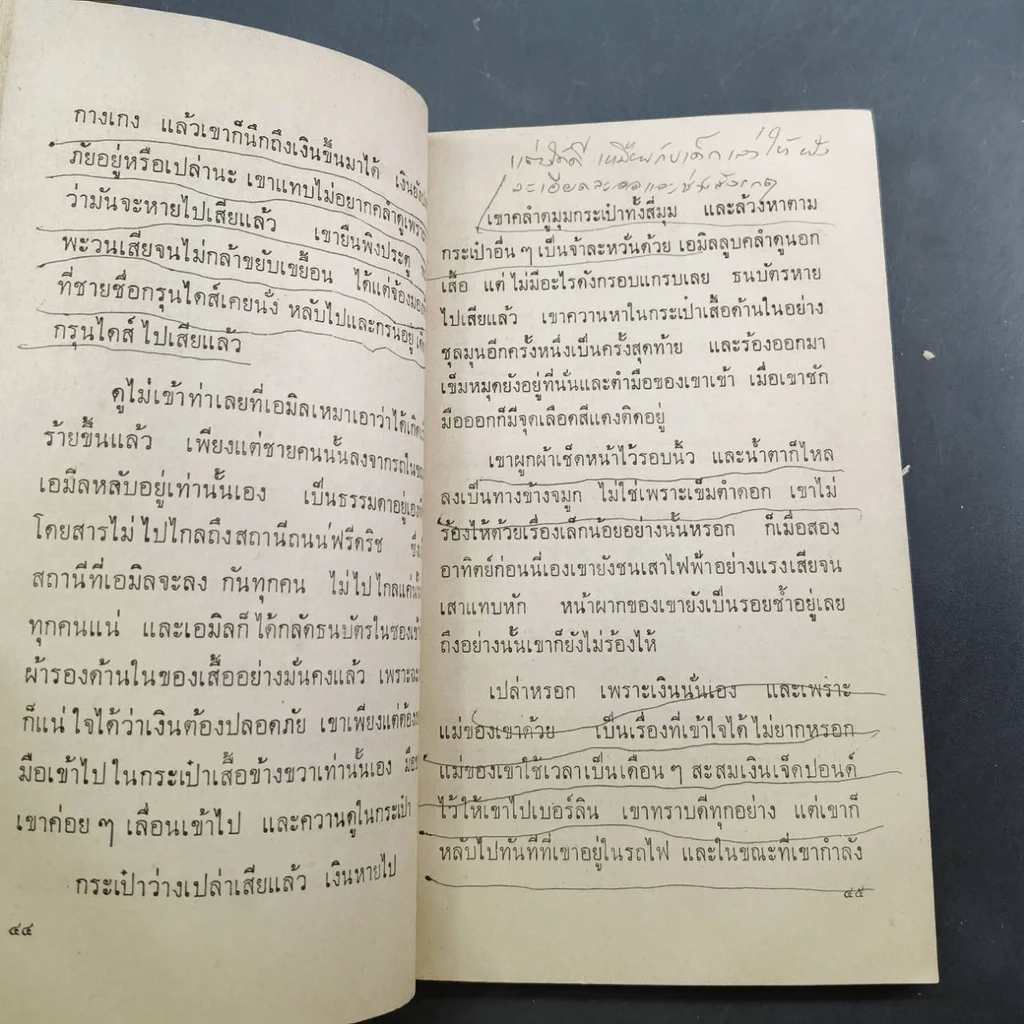 กางเกง แล้วเขาก็นึกถึงเงินขึ้นมาได้
ภัยอยู่หรือเปล่านะ เขาแทบไม่อยากคลำดูเพราะ
ว่ามันจะหายไปเสียแล้ว เขายืนพิงประตู
พะวนเสียจนไม่กล้าขยับเขยื้อน ได้แต่จ้องมอง
ที่ชายชื่อกรุนไดส์เคยนั่ง หลับไปและกรนอยู่
กรุนไดส์ ไปเสียแล้ว
ดูไม่เข้าท่าเลยที่เอมิลเหมาเอาว่าได้เกิด
ร้ายขึ้นแล้ว เพียงแต่ชายคนนั้นลงจากรถใน
เอมิลหลับอยู่เท่านั้นเอง เป็นธรรมดาอยู่เอง
โดยสารไม่ไปไกลถึงสถานีถนนฟรีดริช
สถานีที่เอมิลจะลง กันทุกคน ไม่ไปไกลแค่นั้น
ทุกคนแน่ และเอมิลก็ได้กลัดธนบัตรในซอง
ผ้ารองด้านในของเสื้ออย่างมั่นคงแล้ว เพราะ
ก็แน่ใจได้ว่าเงินต้องปลอดภัย เขาเพียงแต่ต้อง
มือเข้าไปในกระเป๋าเสื้อข้างขวาเท่านั้นเอง
เขาค่อย ๆ เลื่อนเข้าไป และควานดูในกระเป๋า
กระเป๋าว่างเปล่าเสียแล้ว เงินหายไป
๔๔
แต่งได้ดี เหมือนกับเด็กเล่าให้ฟัง
ละเอียดละออและช่างสังเกต
เขาคลำดูมุมกระเป๋าทั้งสี่มุม และล้วงหาตาม
กระเป๋าอื่น ๆ เป็นจ้าละหวั่นด้วย เอมิลลูบคลำดูนอก
เสื้อ แต่ไม่มีอะไรดังกรอบแกรบเลย ธนบัตรหาย
ไปเสียแล้ว เขาควานหาในกระเป๋าเสื้อด้านในอย่าง
ชุลมุนอีกครั้งหนึ่งเป็นครั้งสุดท้าย และร้องออกมา
เข็มหมุดยังอยู่ที่นั่นและตำมือของเขาเข้า เมื่อเขาชัก
มือออกก็มีจุดเลือดสีแดงติดอยู่
เขาผูกผ้าเช็ดหน้าไว้รอบนิ้ว และน้ำตาก็ไหล
ลงเป็นทางข้างจมูก ไม่ใช่เพราะเข็มตำดอก เขาไม่
ร้องไห้ด้วยเรื่องเล็กน้อยอย่างนั้นหรอก ก็เมื่อสอง
อาทิตย์ก่อนนี่เองเขายังชนเสาไฟฟ้าอย่างแรงเสียจน
เสาแทบหัก หน้าผากของเขายังเป็นรอยช้ำอยู่เลย
ถึงอย่างนั้นเขาก็ยังไม่ร้องไห้
เปล่าหรอก เพราะเงินนั่นเอง และเพราะ
แม่ของเขาด้วย เป็นเรื่องที่เข้าใจได้ไม่ยากหรอก
แม่ของเขาใช้เวลาเป็นเดือน ๆ สะสมเงินเจ็ดปอนด์
ไว้ให้เขาไปเบอร์ลิน เขาทราบดีทุกอย่าง แต่เขาก็
หลับไปทันทีที่เขาอยู่ในรถไฟ และในขณะที่เขากำลัง
๔๕